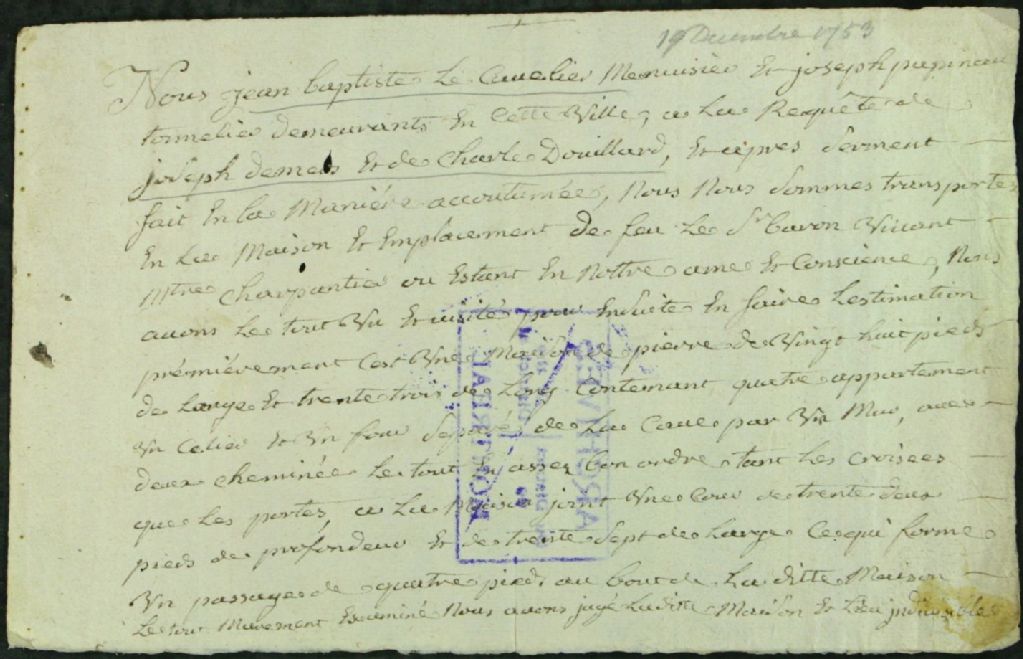 19 Decembre 1753
Nous jean baptiste Le Cavelier Menuisier Et joseph papineau
tonnelier demeurants En Cette Ville, a La Requête de
joseph demers Et de Charle Douillard, Et après Serment
fait En la Maniére accoutumée, Nous Nous Sommes transportes
En La Maison Et Emplacement de feu Le Sr baron Vivant
Mtre Charpantier ou Estant En Nottre ame Et Conscience, Nous
avons Le tout Vu Et visité pour Ensuite En faire Lestimation
prémiérement Cest Une Maison de pierre de Vingt huit pieds
de Large Et trente trois de Long Contenant quatre appartement
Un Celier Et Un four Separé de La Cave par Un Mur, avec
deux cheminée Le tout En assez bon ordre tant Les Croisées
que Les portes a La Maison joint Une Cour de trente deux
pieds de profondeur Et de trente Sept de Large Ce qui forme
Un passage de quatre pieds au bout de La ditte Maison
Le tout Murement Examiné Nous avons jugé La ditte Maison Et Lieu jndivisible
ARCHIVES
MONTREAL